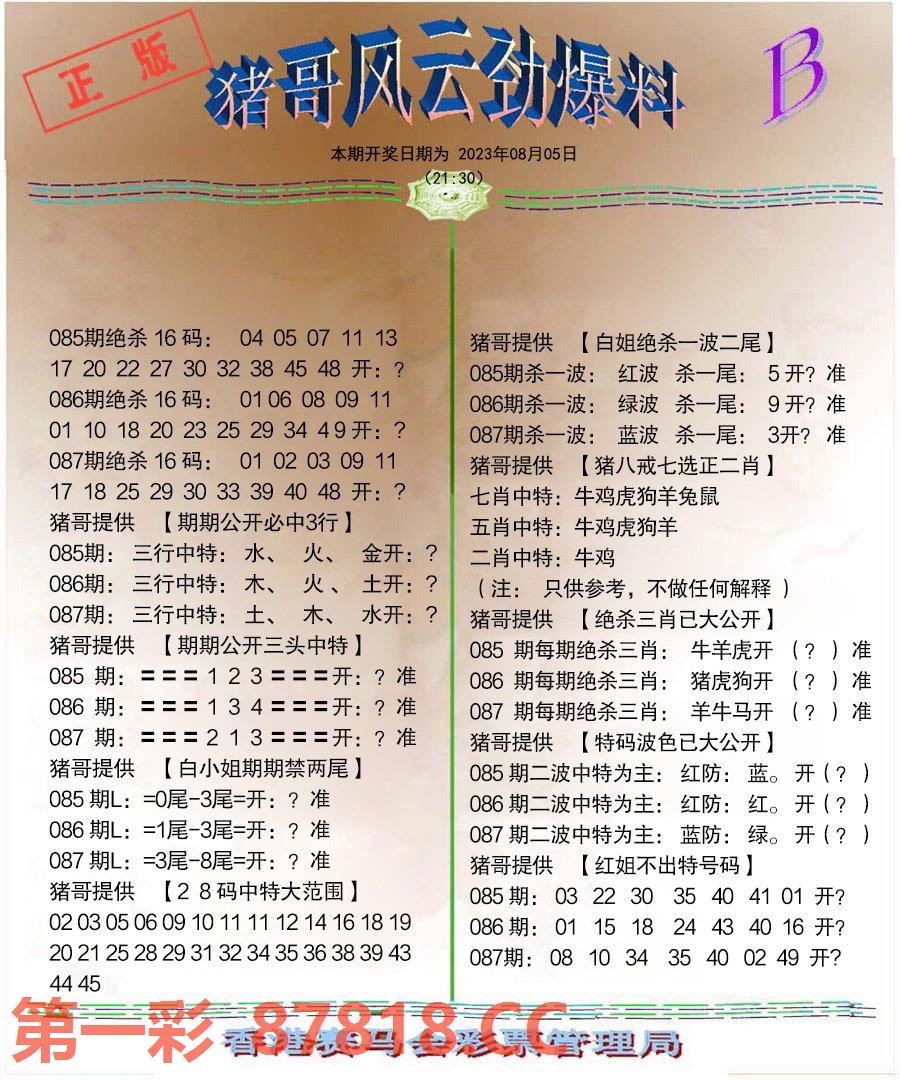 正版
猪哥风云劲爆料
B
本期开奖日期为 2023年08月05日
(21:30)
085期绝杀 16 码： 04 05 07 11 13
17 20 22 27 30 32 38 45 48 开：?
086期绝杀 16 码： 01 06 08 09 11
01 10 18 20 23 25 29 34 4 9 开：?
087期绝杀 16 码： 01 02 03 09 11
17 18 25 29 30 33 39 40 48 开：?
猪哥提供 【期期公开必中3行】
085期： 三行中特：水、 火、 金开：?
086期： 三行中特：木、 火 、土开：?
087期： 三行中特：土、 木、 水开：?
猪哥提供 【期期公开三头中特】
085 期：＝＝＝ 1 2 3 ＝＝＝开：? 准
086 期：＝＝＝ 1 3 4 ＝＝＝开：? 准
087 期：＝＝＝ 2 1 3 ＝＝＝开：? 准
猪哥提供 【白小姐期期禁两尾】
085 期L：=0尾-3尾=开：? 准
086 期L：=1尾-3尾=开：? 准
087 期L：=3尾-8尾=开：? 准
猪哥提供 【２８码中特大范围】
02 03 05 06 09 10 11 11 12 14 16 18 19
20 21 25 28 29 31 32 34 35 36 38 39 43
44 45
猪哥提供 【白姐绝杀一波二尾】
085期杀一波： 红波 杀一尾： 5 开? 准
086期杀一波： 绿波 杀一尾： 9 开? 准
087期杀一波： 蓝波 杀一尾： 3开? 准
猪哥提供 【猪八戒七选正二肖】
七肖中特：牛鸡虎狗羊兔鼠
五肖中特：牛鸡虎狗羊
二肖中特：牛鸡
（注： 只供参考，不做任何解释 ）
猪哥提供 【绝杀三肖已大公开】
085 期每期绝杀三肖： 牛羊虎开 （? ）准
086 期每期绝杀三肖： 猪虎狗开 （? ）准
087 期每期绝杀三肖： 羊牛马开 （? ）准
猪哥提供 【特码波色已大公开】
085 期二波中特为主：红防：蓝。开（? ）
086 期二波中特为主：红防：红。开（? ）
087 期二波中特为主：蓝防：绿。开（? ）
猪哥提供 【红姐不出特号码】
085 期： 03 22 30 35 40 41 01 开?
086 期： 01 15 18 24 43 40 16 开?
087期： 08 10 34 35 40 02 49 开?
第一彩 87818.CC
香港赛马会彩票管理局